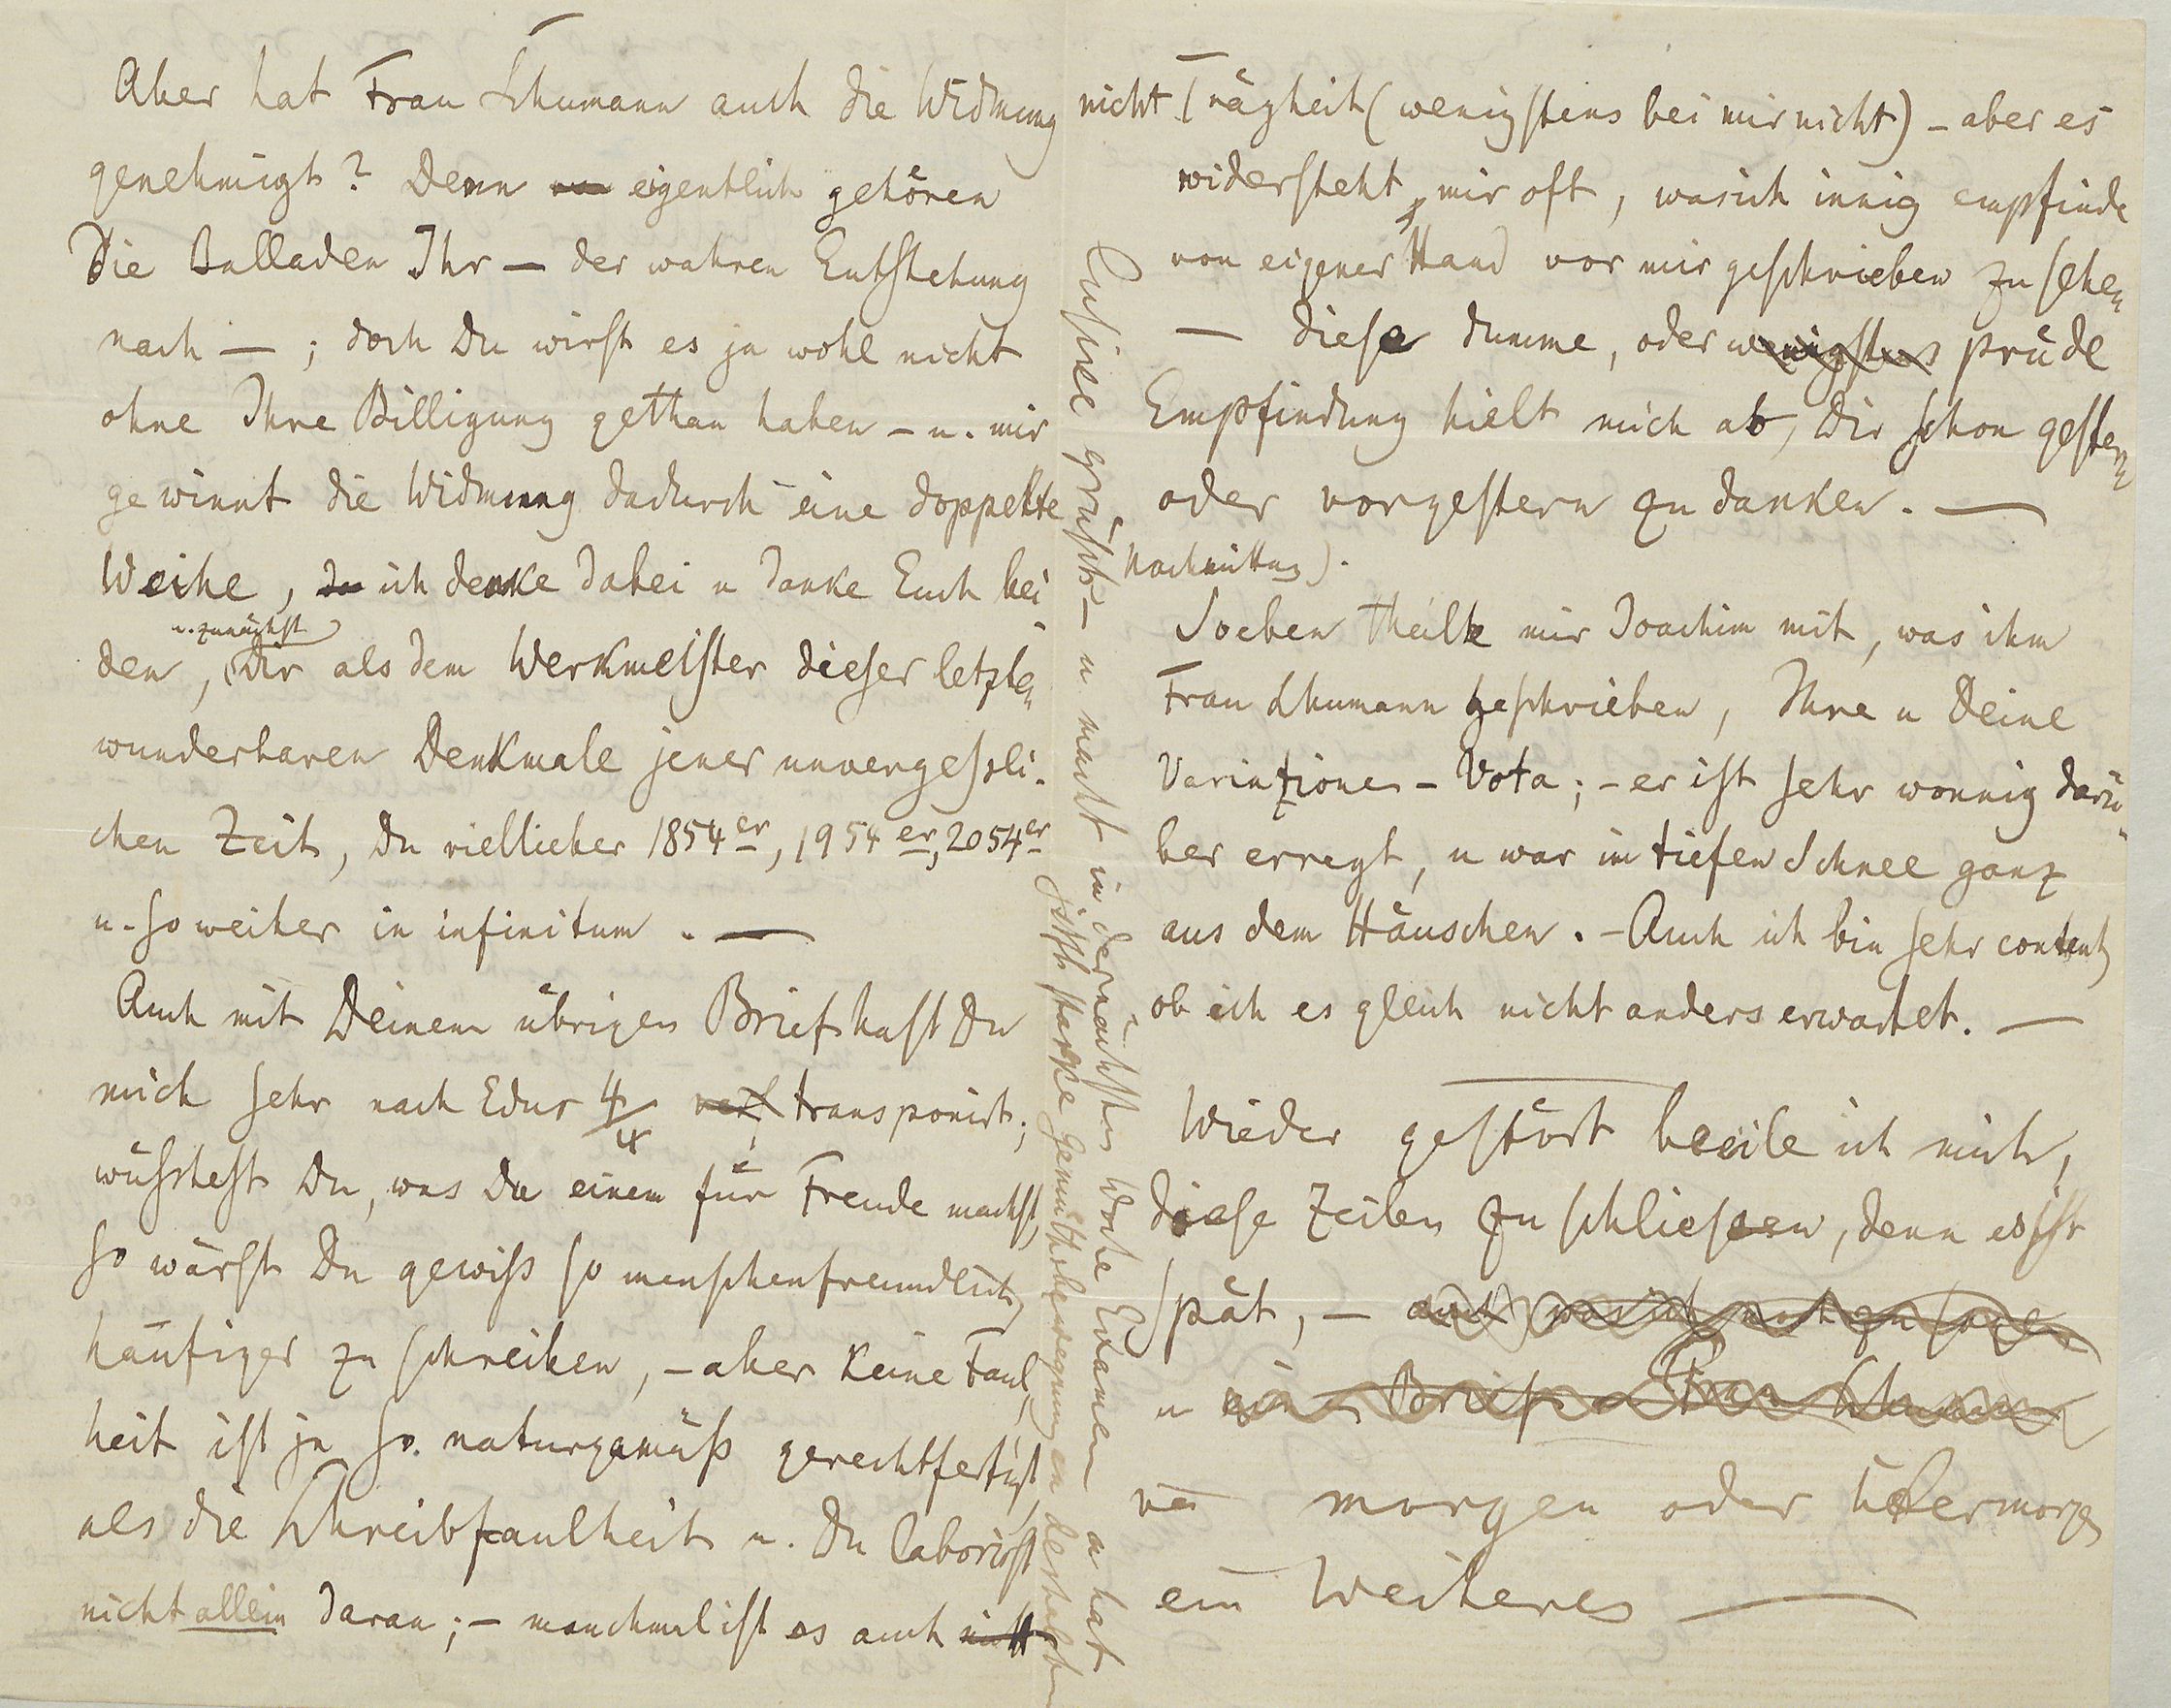 Aber hat Frau Schumann auch die Widmung
genehmigt? Denn eigentlich gehören
Die Balladen Ihr — der wahren Entstehung
nach — ; doch Du wirst es ja wohl nicht
ohne Ihre Billigung gethan haben – u. mir
gewinnt die Widmung dadurch eine doppelte
Weihe, da ich denke dabei u danke Euch bei-
u. zunächst
den, Dir als dem Werkmeister dieser letzten
wunderbaren Denkmale jener unvergeßli-
chen Zeit, Du viellieber 1854er, 1954er, 2054er
u. so weiter in infinitum. —
Auch mit Deinem übrigen Brief hast Du
mich sehr nach Edur 4/4 transponirt;
wüßtest Du, was Du einem für Freude machst,
so wärst Du gewiß so menschenfreundlich,
häufiger zu schreiben, – aber keine Faul-
heit ist ja so naturgemäß gerechtfertigt,
als die Schreibfaulheit u. Du laborirst
nicht allein daran; – manchmal ist es auch nicht
nicht Trägheit (wenigstens bei mir nicht) – aber es
widersteht mir oft, was ich innig empfinde
von eigener Hand vor mir geschrieben zu sehen,
— diese dumme, oder wenigstens prüde
Empfindung hielt mich ab, Dir schon gestern
oder vorgestern zu danken. —
Nachmittag).
Soeben theilte mir Joachim mit, was ihm
Frau Schumann geschrieben, Ihre u Deine
Variazionen – Vota; – er ist sehr wonnig darü-
ber erregt, u war im tiefen Schnee ganz
aus dem Häuschen. – Auch ich bin sehr content,
ob ich es gleich nicht anders erwartet. —
Wieder gestört beeile ich mich,
diese Zeilen zu schließen, denn es ist
spät, – auch was ich noch zu sagen
u einen Brief Frau Schumann
morgen oder übermorgen
ein Weiteres —
grüßt – u macht in der nächsten Woche Examen u hat
jetzt starke Gemüthsbewegungen deshalb